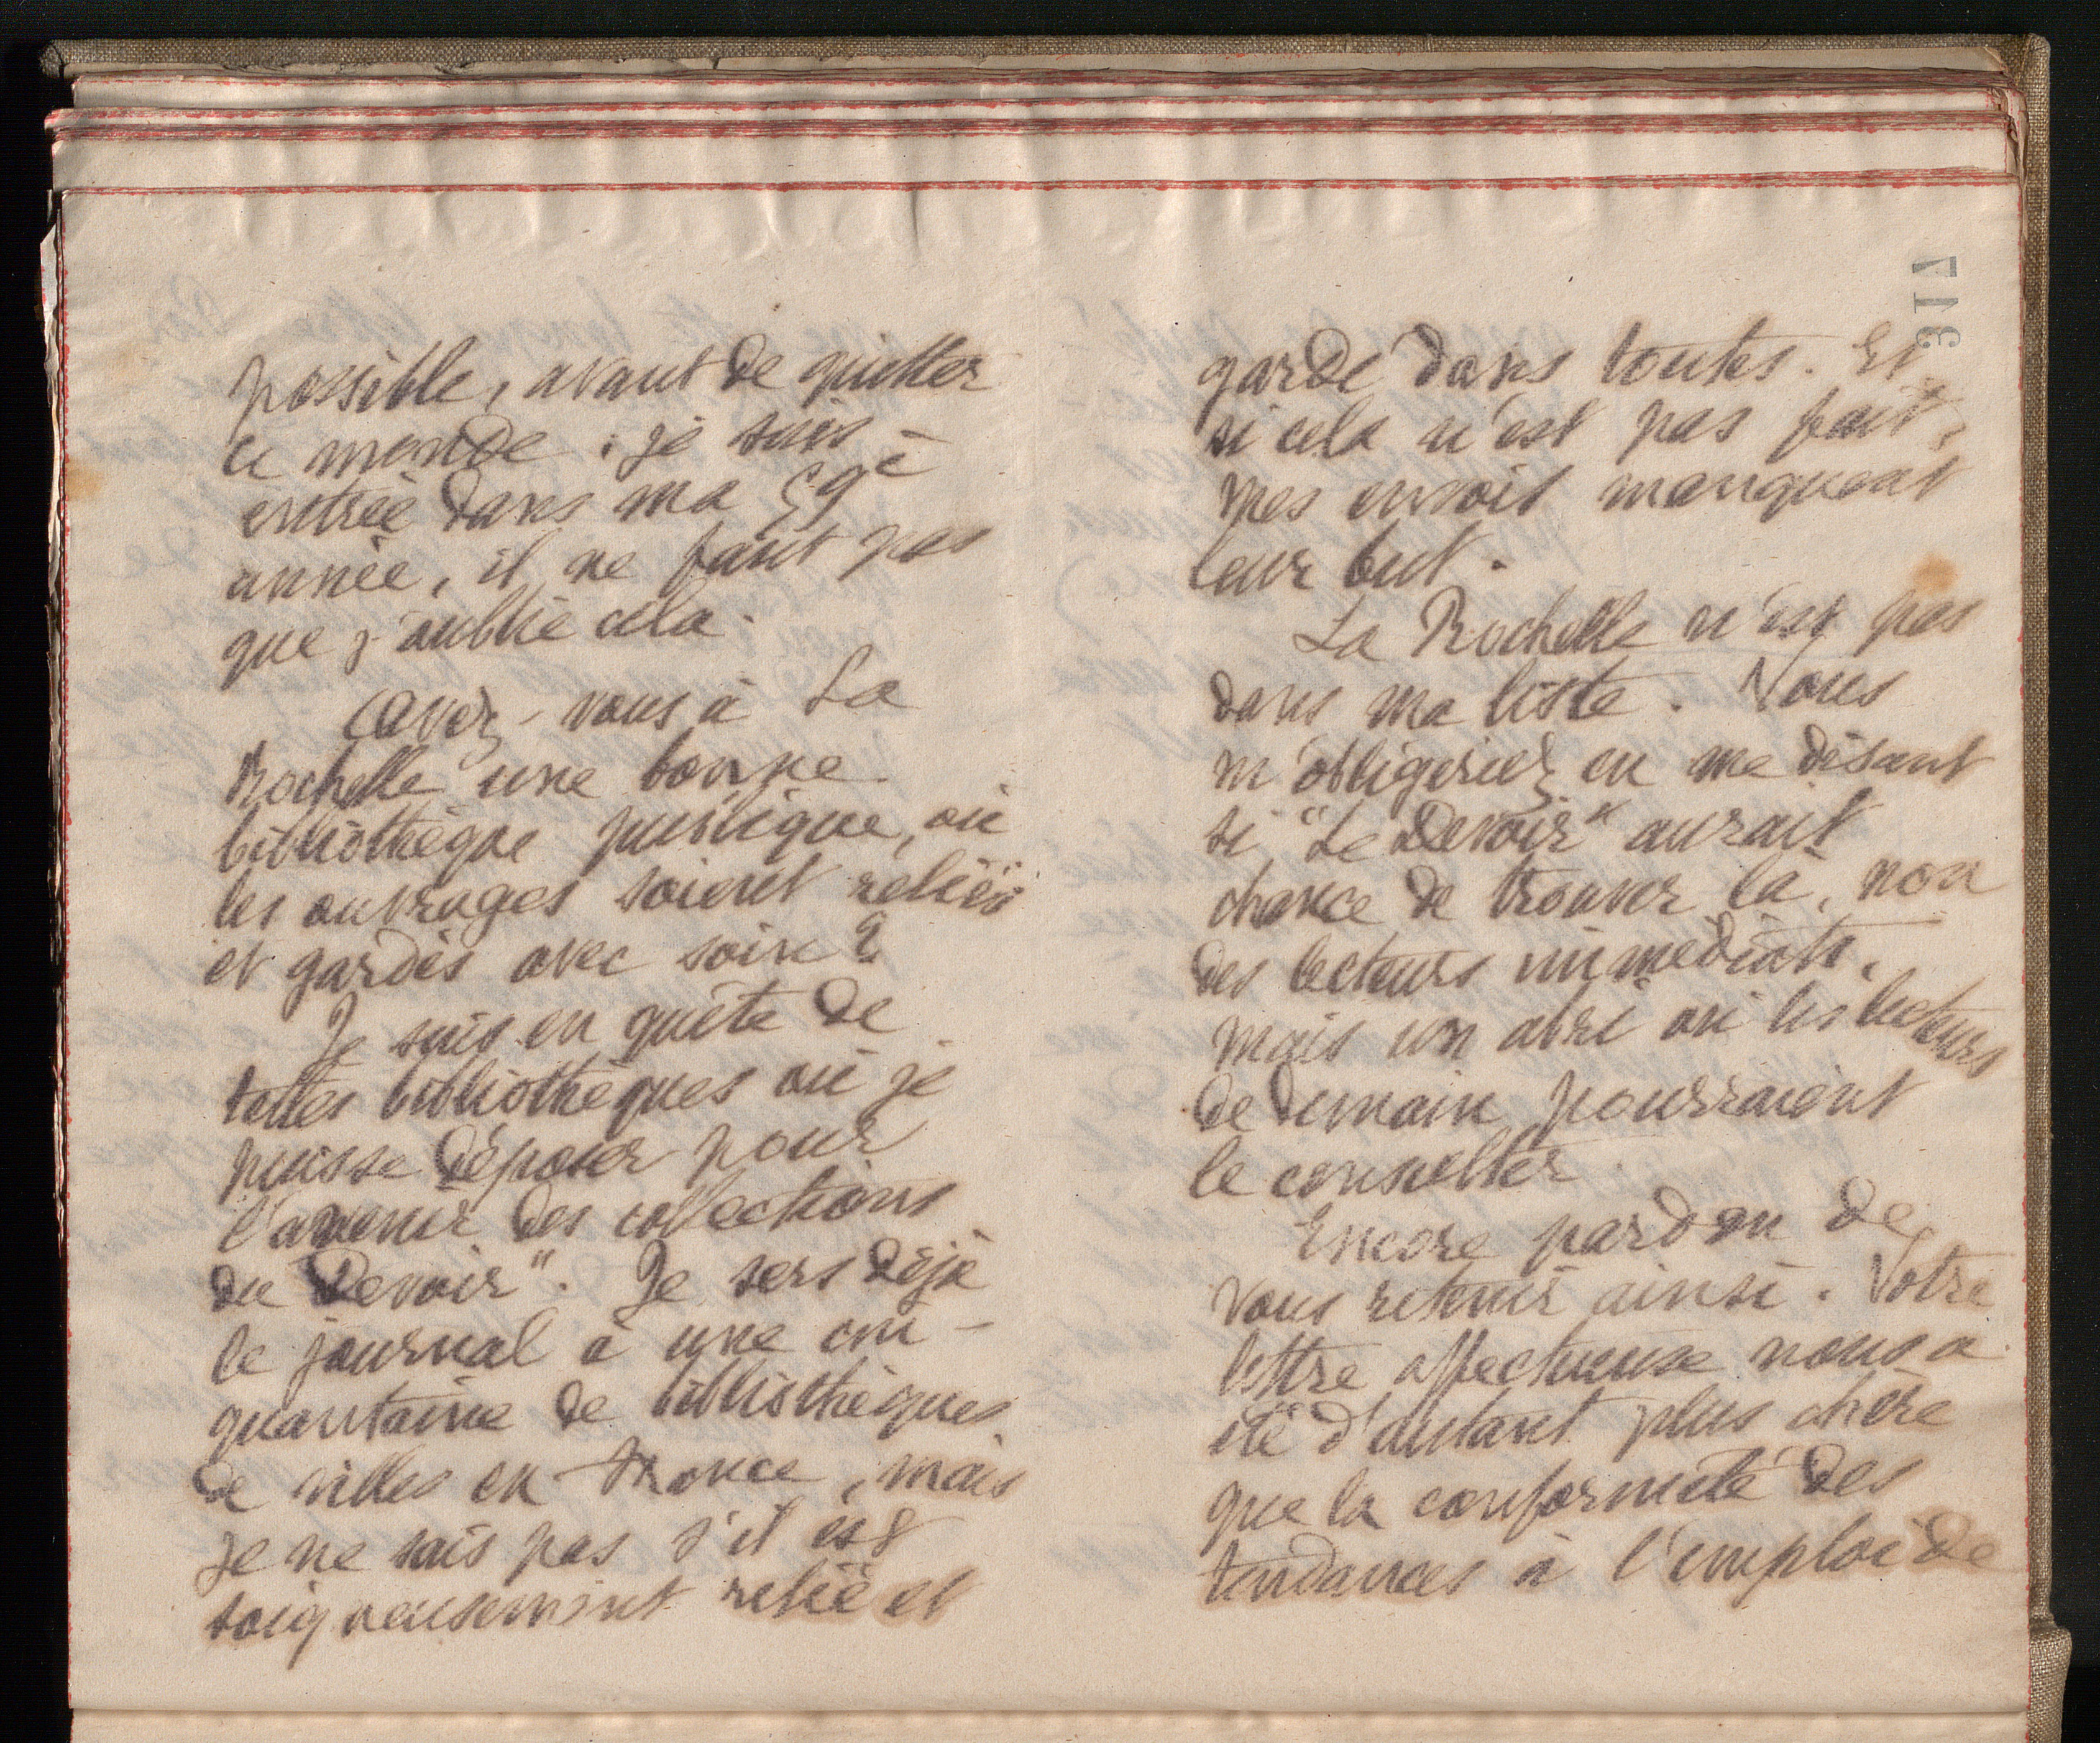 possible, avant de quitter
ce monde. Je suis
entrée dans ma 59e
année, il ne faut pas
que j'oublie cela.
Avez-vous à La
Rochelle une bonne
bibliothèque publique, où
les ouvrages soient reliés
et gardés avec soin ?
Je suis en quête de
telles bibliothèques où je
puisse déposer pour
l'avenir des collections
du Devoir". Je sers déjà
le journal à une cin-
quantaine de bibliothèques
de villes en France, mais
je ne sais pas s'il est
soigneusement relié et
317
gardé dans toutes. Et
si cela n'est pas fait,
mes envois manquent
leur but.
La Rochelle n'est pas
dans ma liste. Vous
m'obligeriez en me disant
si "Le Devoir" aurait
chance de trouver là, non
des lecteurs immédiats,
mais un abri où les lecteurs
de demain pourraient
le consulter.
Encore pardon de
vous retenir ainsi. Votre
lettre affectueuse nous a
été d'autant plus chère
que la conformité des
tendances à l'emploi de